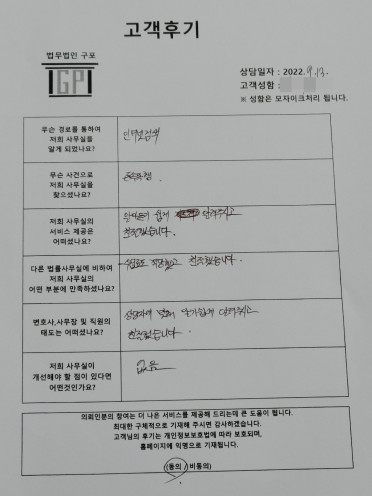 고객후기
법무법인 구포
GP
상담일자 : 2022. 9. 13.
고객성함 :
※ 성함은 모자이크처리 됩니다.
무슨 경로를 통하여
저희 사무실을
알게 되었나요?
인터넷검색
무슨 사건으로
저희 사무실을
찾으셨나요?
음주운전.
저희 사무실의
서비스 제공은
어떠셨나요?
알아듣기 쉽게 알려주시고
친절했습니다.
다른 법률사무실에 비하여
저희 사무실의
어떤 부분에 만족하셨나요?
수임료도 적당했고 친절했습니다.
변호사,사무장 및 직원의
태도는 어떠셨나요?
상담자에 맞게 알기쉽게 알려주시고
친절했습니다.
저희 사무실이
개선해야 할 점이 있다면
어떤것인가요?
없음
의뢰인분의 참여는 더 나은 서비스를 제공해 드리는데 큰 도움이 됩니다.
최대한 구체적으로 기재해 주시면 감사하겠습니다.
고객님의 후기는 개인정보보호법에 따라 보호되며,
홈페이지에 익명으로 기재됩니다.
(동의 / 비동의)